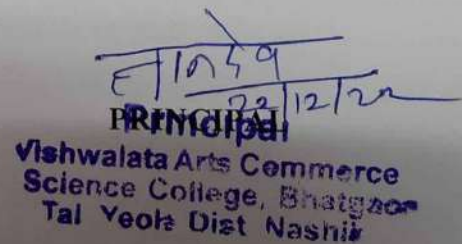 22/12/22
PRINCIPAL
Principal
Vishwalata Arts Commerce
Science College, Bhatgaon
Tal Yeola Dist Nashik